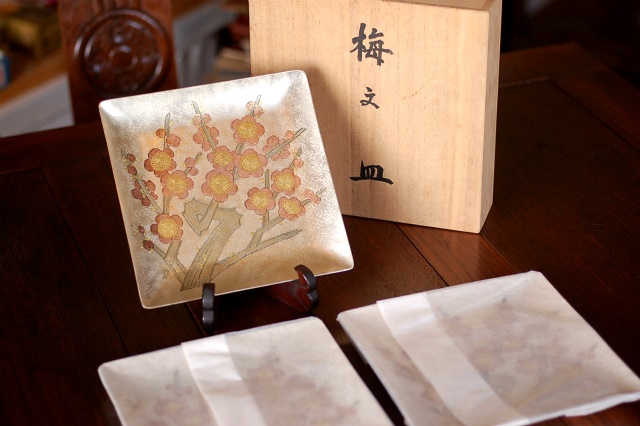 梅文皿